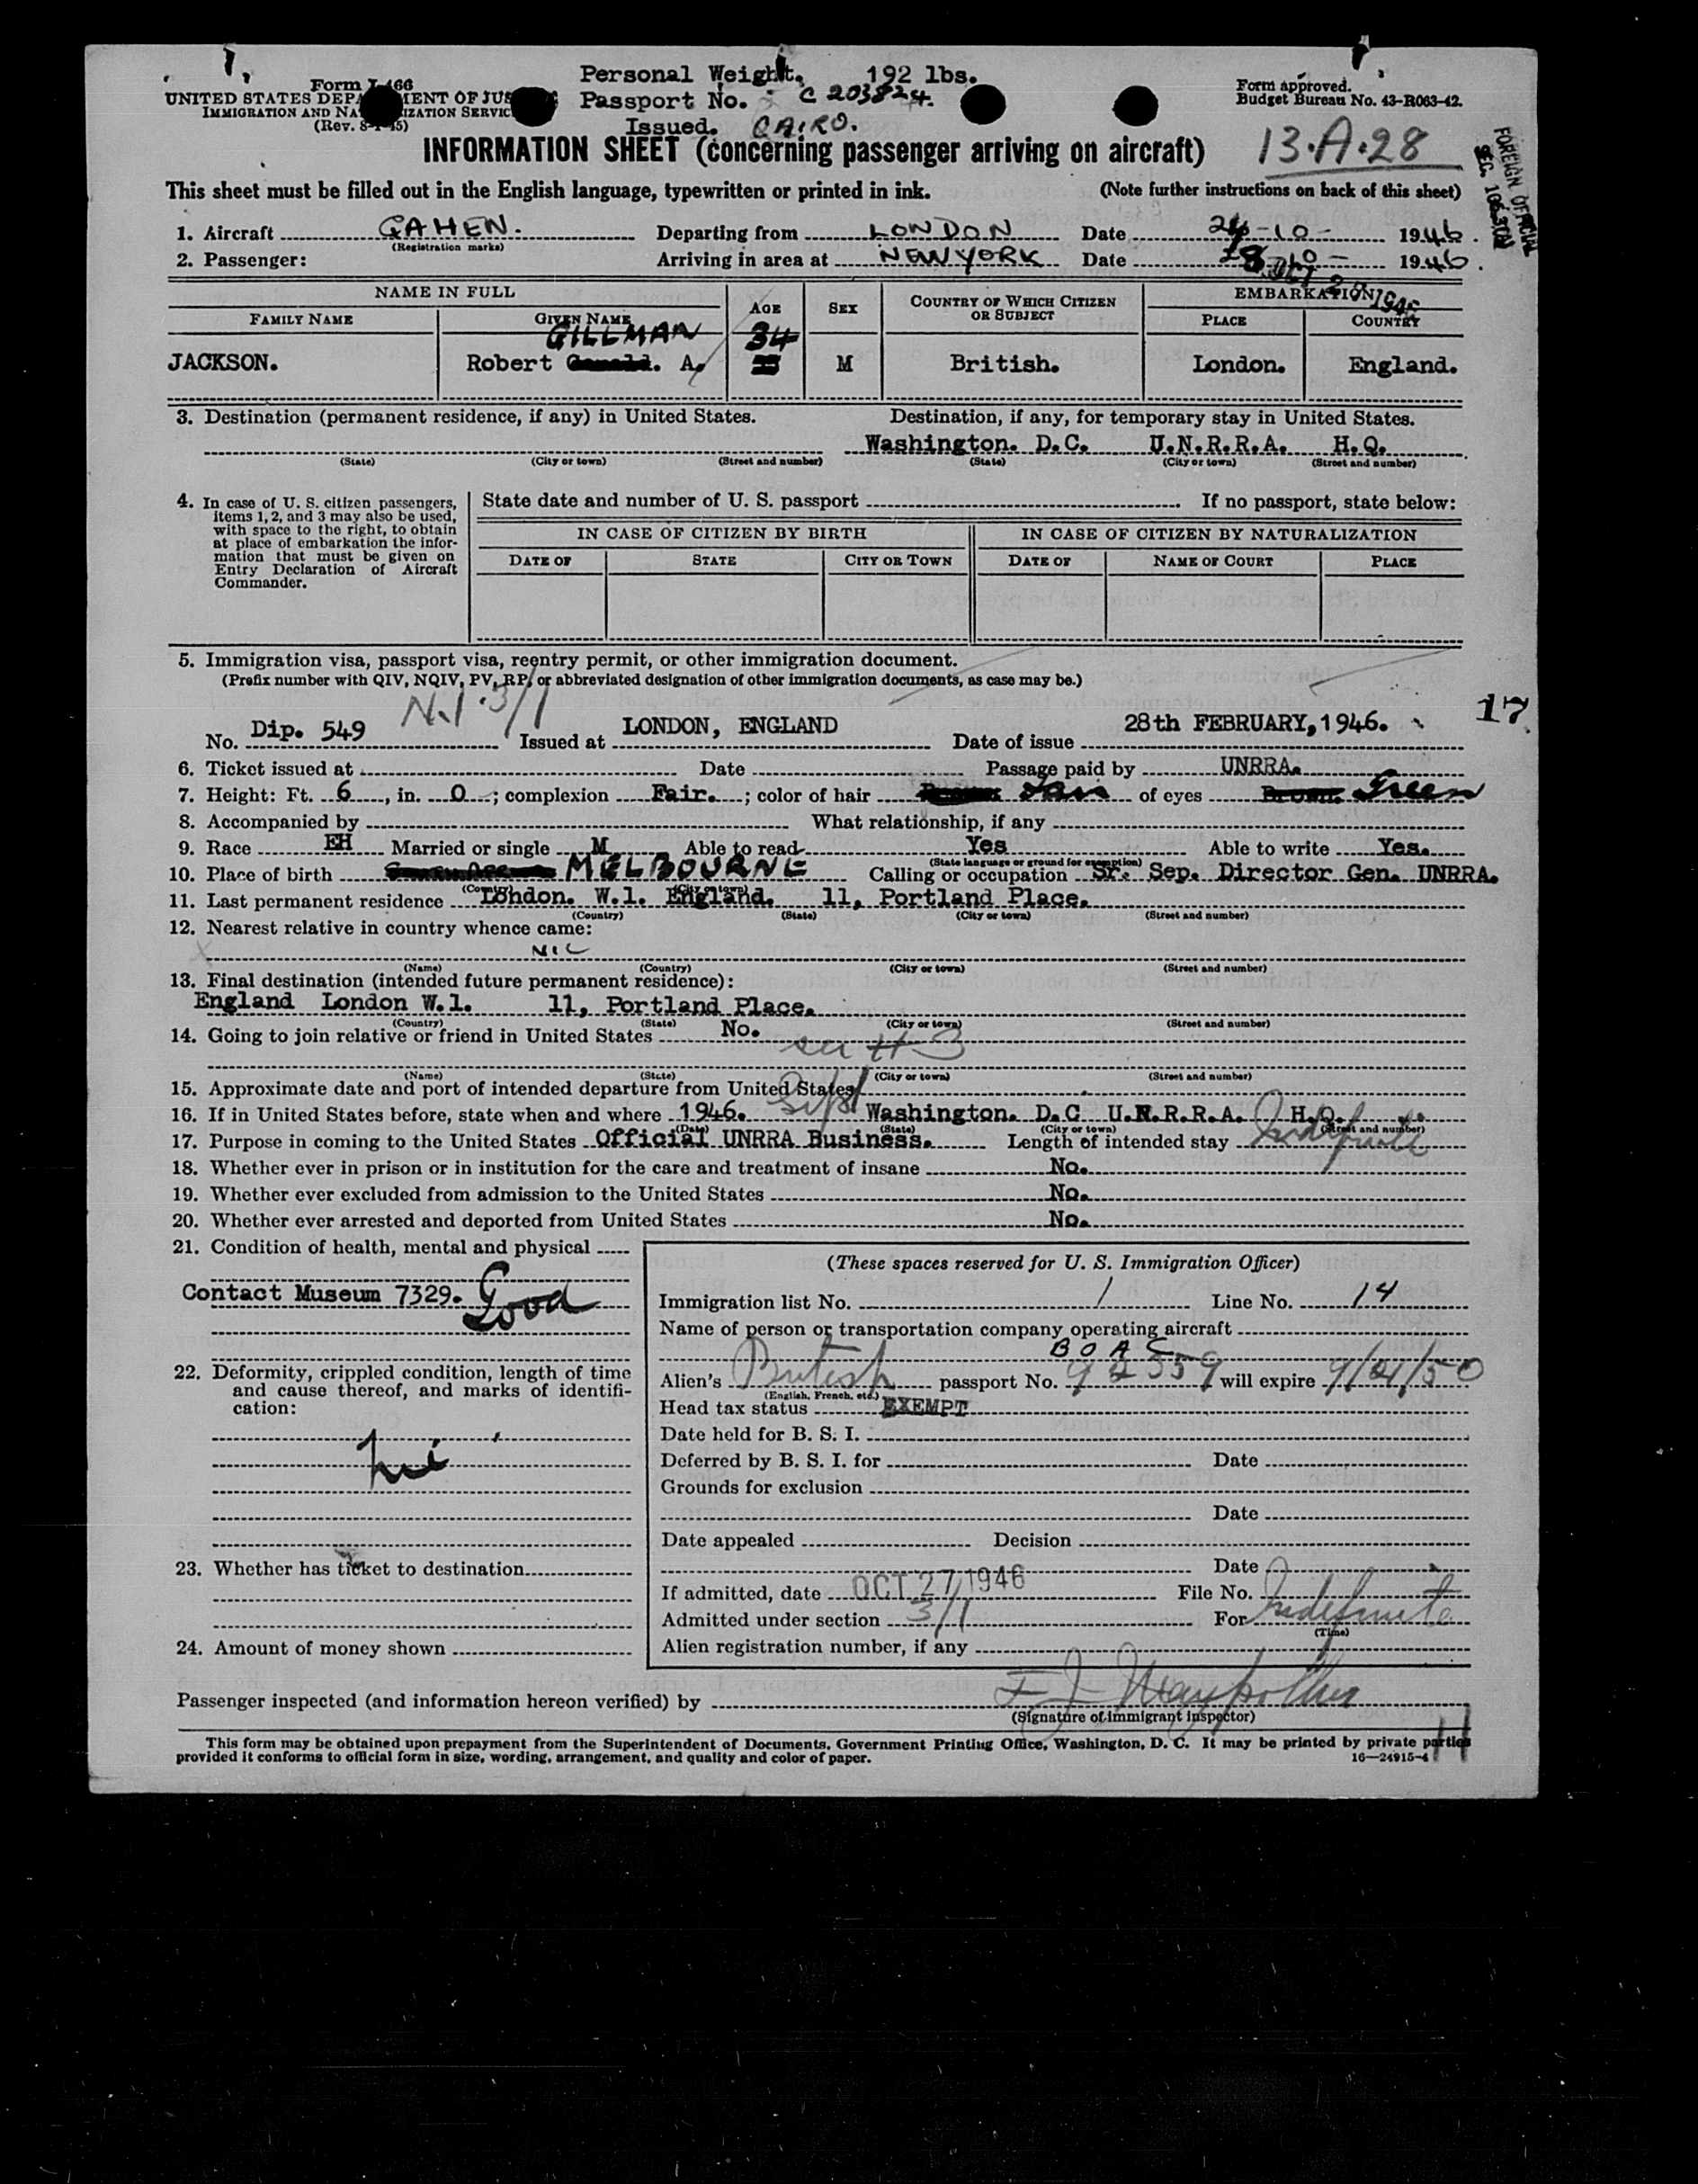 Personal Weight. 192 lbs.
Form I-466
Form approved.
UNITED STATES DEPARTMENT OF JUSTICE
Passport No. C 203824.
Budget Bureau No. 43-R063-42.
IMMIGRATION AND NATURALIZATION SERVICE
(Rev. 8-1-45)
Issued. CAIRO.
INFORMATION SHEET (concerning passenger arriving on aircraft)
13.A.28
FOREIGN OFFICIAL
This sheet must be filled out in the English language, typewritten or printed in ink. (Note further instructions on back of this sheet)
1. Aircraft GAHEN. Departing from LONDON Date 24-10- 1946.
(Registration marks)
2. Passenger: Arriving in area at NEW YORK Date 10- 1946.
NAME IN FULL
AGE
SEX
COUNTRY OF WHICH CITIZEN OR SUBJECT
EMBARKATION
FAMILY NAME
GIVEN NAME
PLACE
COUNTRY
GILLMAN
34
JACKSON. Robert A. M British. London. England.
3. Destination (permanent residence, if any) in United States. Destination, if any, for temporary stay in United States.
Washington. D.C. U.N.R.R.A. H.Q.
(State) (City or town) (Street and number) (State) (City or town) (Street and number)
4. In case of U. S. citizen passengers, items 1, 2, and 3 may also be used, with space to the right, to obtain at place of embarkation the information that must be given on Entry Declaration of Aircraft Commander.
State date and number of U. S. passport . If no passport, state below:
IN CASE OF CITIZEN BY BIRTH IN CASE OF CITIZEN BY NATURALIZATION
DATE OF STATE CITY OR TOWN DATE OF NAME OF COURT PLACE
5. Immigration visa, passport visa, reentry permit, or other immigration document.
(Prefix number with QIV, NQIV, PV, RP, or abbreviated designation of other immigration documents, as case may be.)
N.I. 3/1
17
No. Dip. 549 Issued at LONDON, ENGLAND Date of issue 28th FEBRUARY, 1946.
6. Ticket issued at Date Passage paid by UNRRA.
7. Height: Ft. 6, in. 0; complexion Fair. ; color of hair of eyes Green
8. Accompanied by What relationship, if any
9. Race EH Married or single M Able to read Yes Able to write Yes.
(State language or ground for exemption)
10. Place of birth MELBOURNE Calling or occupation Sr. Sep. Director Gen. UNRRA.
(Country) (City or town)
11. Last permanent residence London. W.1. England. 11, Portland Place.
(Country) (State) (City or town) (Street and number)
12. Nearest relative in country whence came:
NIL
(Name) (Country) (City or town) (Street and number)
13. Final destination (intended future permanent residence):
England London W.1. 11, Portland Place.
(Country) (State) (City or town) (Street and number)
14. Going to join relative or friend in United States No.
(Name) (State) (City or town) (Street and number)
15. Approximate date and port of intended departure from United States
16. If in United States before, state when and where 1946. Washington. D.C U.N.R.R.A. H.Q.
(Date) (State) (City or town) (Street and number)
17. Purpose in coming to the United States Official UNRRA Business. Length of intended stay Indefinite
18. Whether ever in prison or in institution for the care and treatment of insane No.
19. Whether ever excluded from admission to the United States No.
20. Whether ever arrested and deported from United States No.
21. Condition of health, mental and physical
Contact Museum 7329. Good
22. Deformity, crippled condition, length of time and cause thereof, and marks of identification:
23. Whether has ticket to destination
24. Amount of money shown
(These spaces reserved for U. S. Immigration Officer)
Immigration list No. 1 Line No. 14
Name of person or transportation company operating aircraft
B O A C
Alien's British passport No. 92559 will expire 9/21/50
(English, French, etc.)
Head tax status EXEMPT
Date held for B. S. I.
Deferred by B. S. I. for Date
Grounds for exclusion
Date
Date appealed Decision
Date
If admitted, date OCT 27 1946 File No.
Admitted under section 3/1 For Indefinite
(Time)
Alien registration number, if any
Passenger inspected (and information hereon verified) by
(Signature of immigrant inspector)
This form may be obtained upon prepayment from the Superintendent of Documents, Government Printing Office, Washington, D. C. It may be printed by private parties
provided it conforms to official form in size, wording, arrangement, and quality and color of paper. 16—24915-4